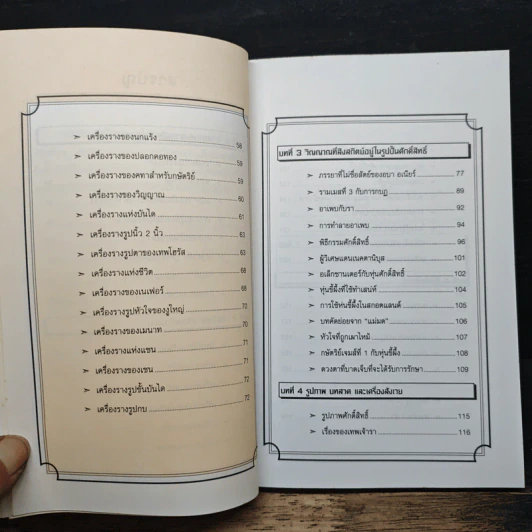 เครื่องรางของนกแร้ง 58
เครื่องรางของปลอกคอทอง 59
เครื่องรางของคทาสำหรับกษัตริย์ 59
เครื่องรางของวิญญาณ 60
เครื่องรางแห่งบันได 61
เครื่องรางรูปนิ้ว 2 นิ้ว 63
เครื่องรางรูปตาของเทพโฮรัส 63
เครื่องรางแห่งชีวิต 68
เครื่องรางของเนเฟอร์ 68
เครื่องรางรูปหัวใจของงูใหญ่ 70
เครื่องรางของเมนาท 70
เครื่องรางแห่งแชน 71
เครื่องรางของเชน 71
เครื่องรางรูปขั้นบันได 72
เครื่องรางรูปกบ 72
บทที่ 3 วิญญาณที่สิงสถิตย์อยู่ในรูปปั้นศักดิ์สิทธิ์
ภรรยาที่ไม่ซื่อสัตย์ของอบา อเนียร์ 77
ราเมเสที่ 3 กับการกบฏ 89
อาเพบกับรา 92
การทำลายอาเพบ 94
พิธีกรรมศักดิ์สิทธิ์ 96
ผู้วิเศษแคนเนคตานิบุส 101
อเล็กซานเดอร์กับหุ่นศักดิ์สิทธิ์ 102
หุ่นขี้ผึ้งที่ใช้ทำเสน่ห์ 104
การใช้หุ่นขี้ผึ้งในสกอตแลนด์ 105
บทคัดย่อยจาก "แม่มด" 106
หัวใจที่ถูกเผาไหม้ 106
กษัตริย์เจมส์ที่ 1 กับหุ่นขี้ผึ้ง 108
ดวงตาที่บาดเจ็บที่จะได้รับการรักษา 109
บทที่ 4 รูปภาพ บทสวด และเครื่องสังเวย
รูปภาพศักดิ์สิทธิ์ 115
เรื่องของเทพเจ้ารา 116